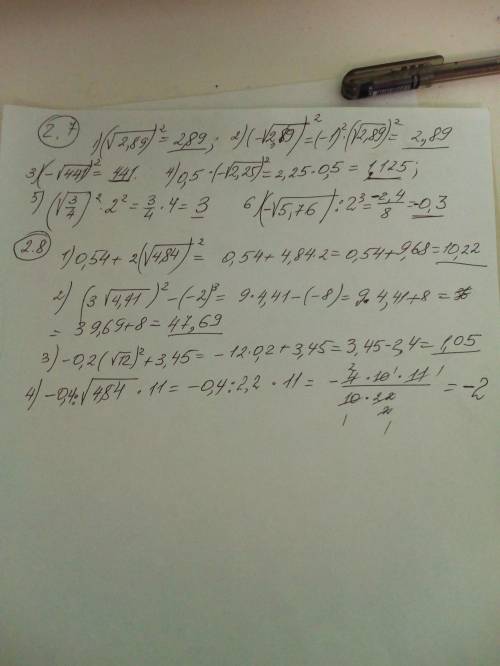 2.7
1) (√2,89)² = 2,89; 2) (-√2,89)² = (-1)²·(√2,89)² = 2,89
3) (-√441)² = 441. 4) 0,5·(-√2,25)² = 2,25·0,5 = 1,125;
5) (√3/4)²·2² = 3/4·4 = 3 6) (-√5,76):2³ = -2,4/8 = -0,3
2.8
1) 0,54 + 2(√4,84)² = 0,54 + 4,84·2 = 0,54 + 9,68 = 10,22
2) (3√4,41)² - (-2)³ = 9·4,41 - (-8) = 9·4,41 + 8 =
= 39,69 + 8 = 47,69
3) -0,2(√12)² + 3,45 = -12·0,2 + 3,45 = 3,45 - 2,4 = 1,05
4) -0,4:√4,84·11 = -0,4:2,2·11 = - 4·10·11 / 10·22 = -2